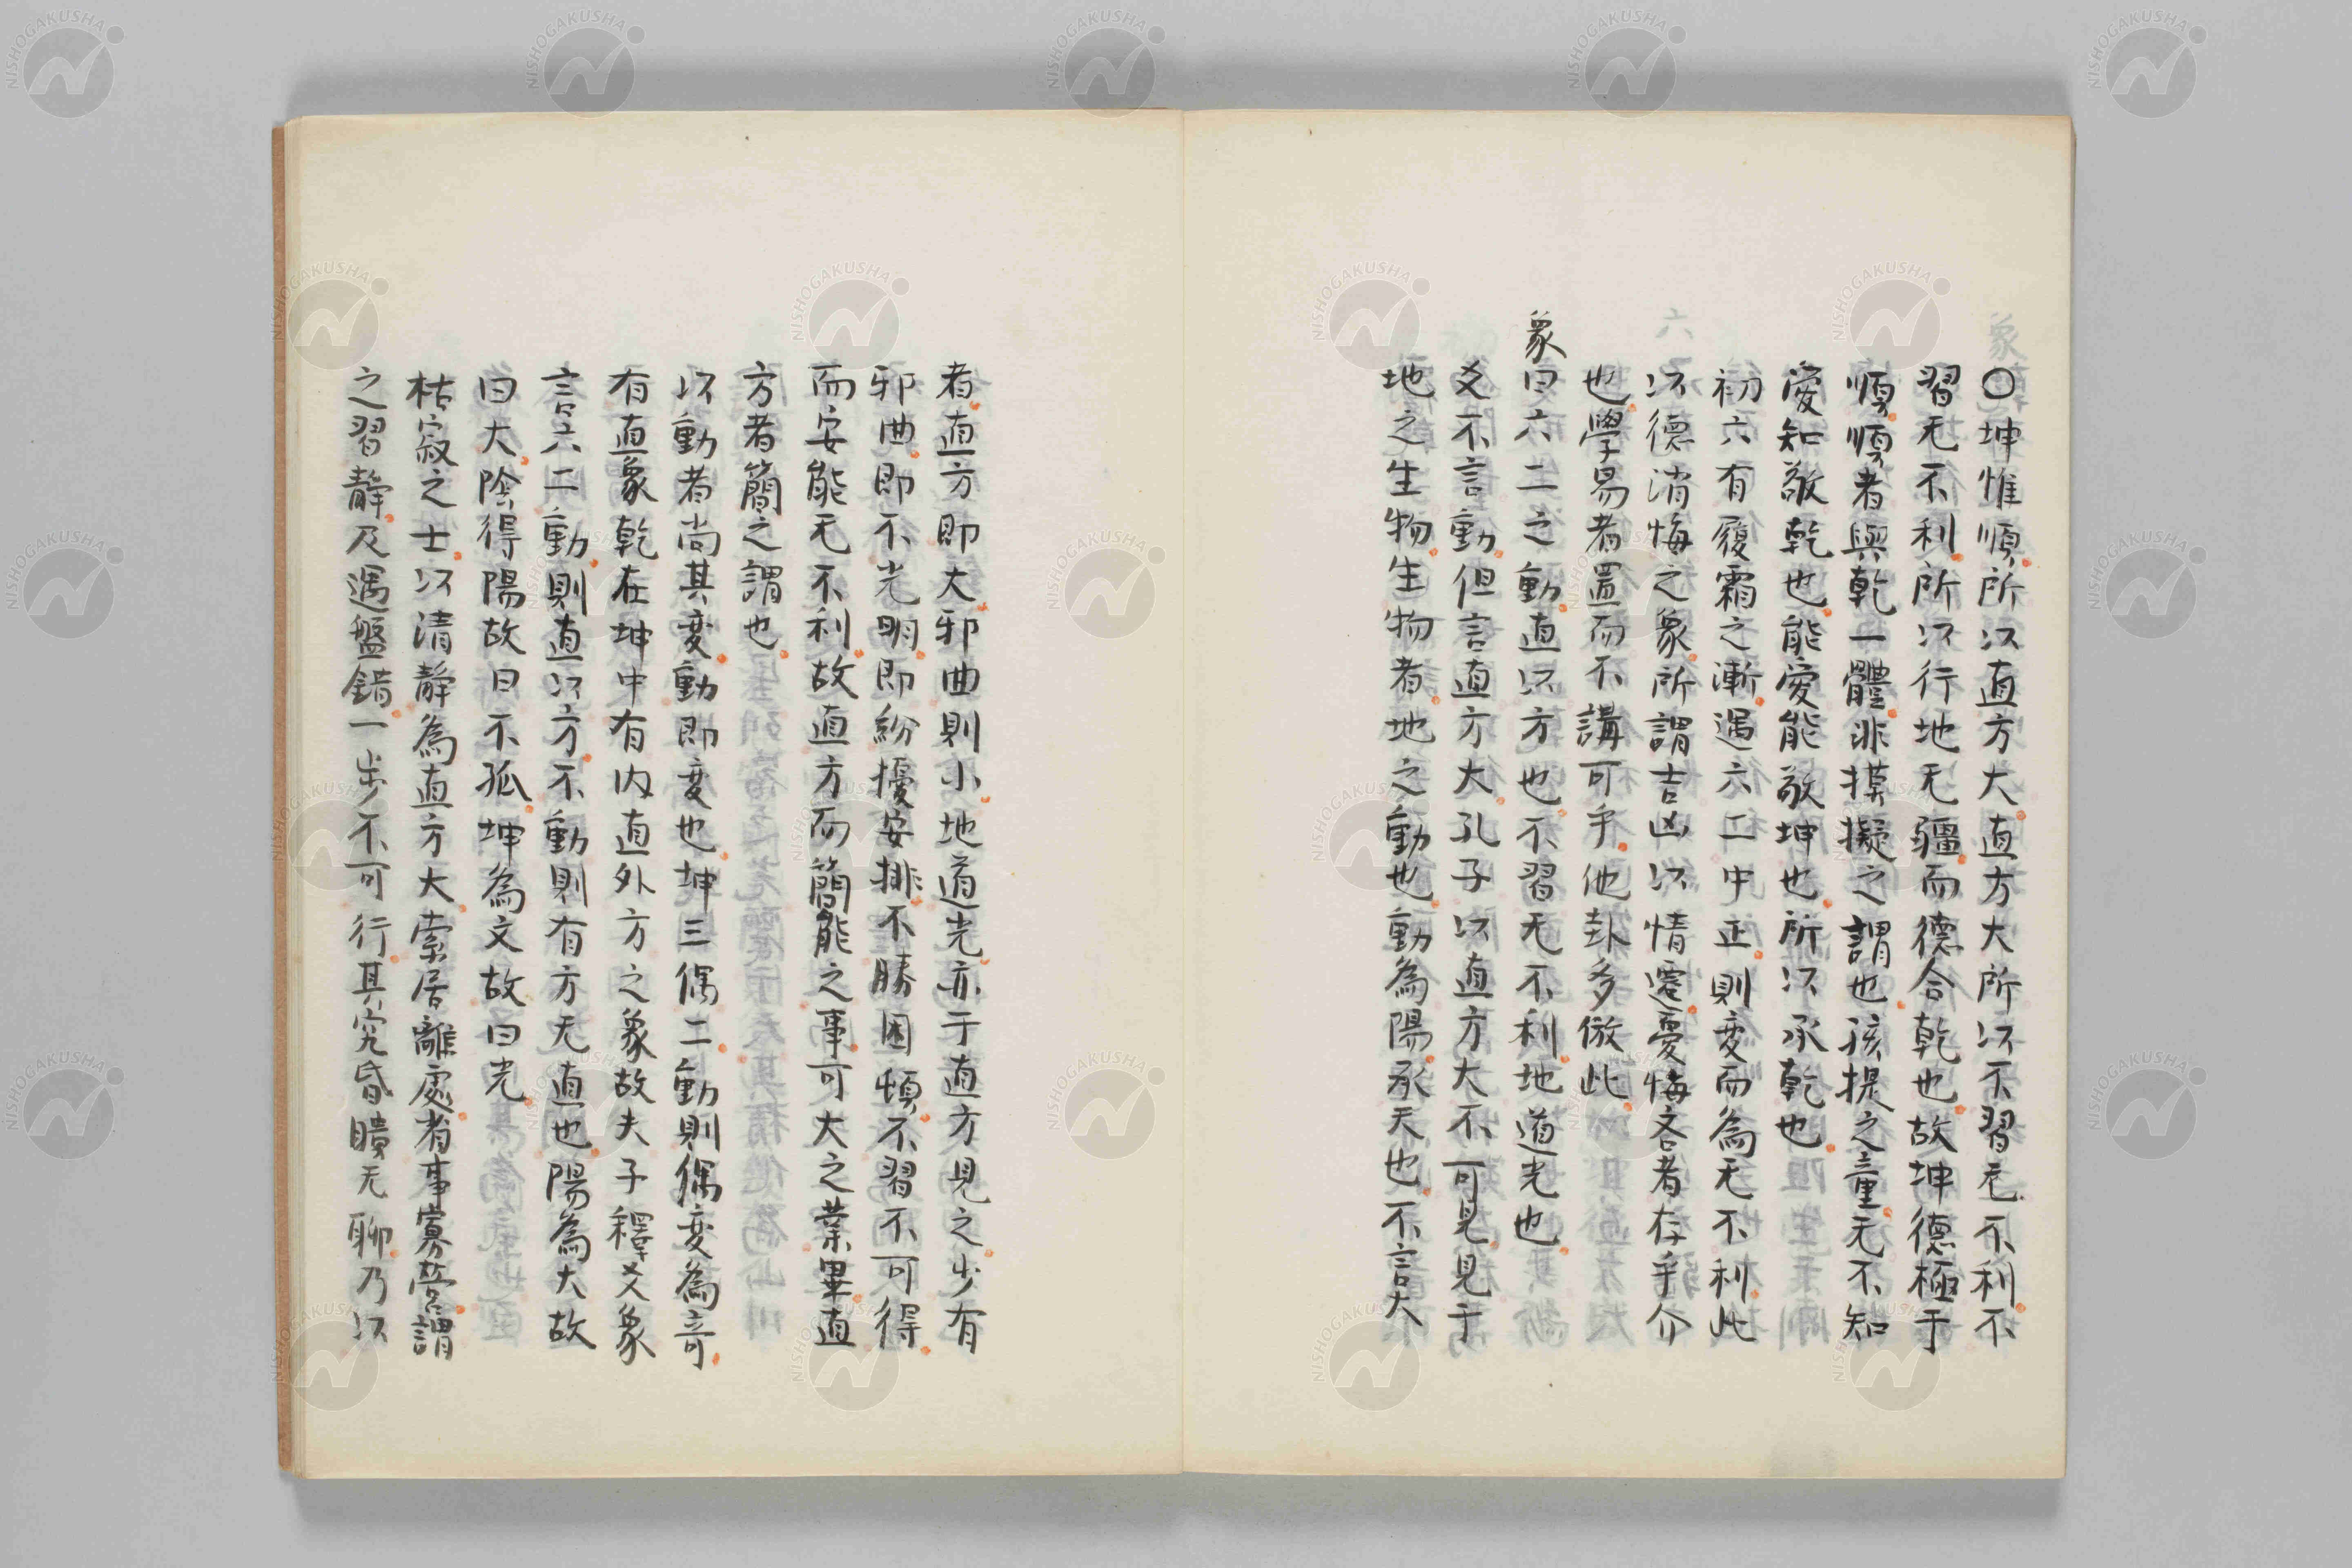 〇坤惟順所以直方大直方大所以不習无不利不
習无不利所以行地无疆而德合乾也故坤德極于
順順者與乾一體非摸擬之謂也孩提之童无不知
愛知敬乾也能愛能敬坤也所以承乾也
初六有履霜之漸遇六二中正則変而為无不利此
以德消悔之象所謂吉凶以情遷憂悔吝者存乎介
也學易者置而不講可乎他卦多倣此
象曰六二之動直以方也不習无不利地道光也
爻不言動但言直方大孔子以直方大不可見見于
地之生物生物者地之動也動為陽承天也不言大
者直方即大邪曲則小地道光亦于直方見之少有
邪曲即不光明即紛擾安排不勝困頓不習不可得
而安能无不利故直方而簡能之事可大之業畢直
方者簡之謂也
以動者尚其変動即変也坤三偶二動則偶変為奇
有直象乾在坤中有内直外方之象故夫子釋爻象
言六二動則直以方不動則有方无直也陽為大故
曰大陰得陽故曰不孤坤為文故曰光
枯寂之士以清靜為直方大索居離處者事寡營謂
之習靜及遇盤錯一步不可行其究昏瞶无聊乃以
NISHOGAKUSHA